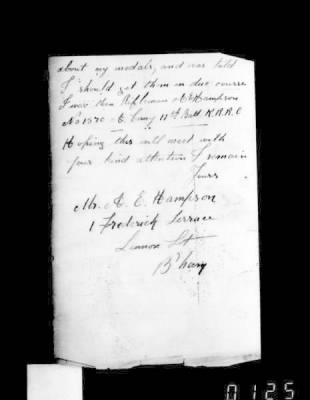 about my medals, and was told
I should get them in due course
I was then Rifleman A. Hampson
No 1570 A. Comy 11th Batt K.R.R.C
Hoping this will meet with
your kind attention I remain
Yours
Mr. A. E. Hampson
1 Frederick Terrace
Lennox St
B'ham
0125